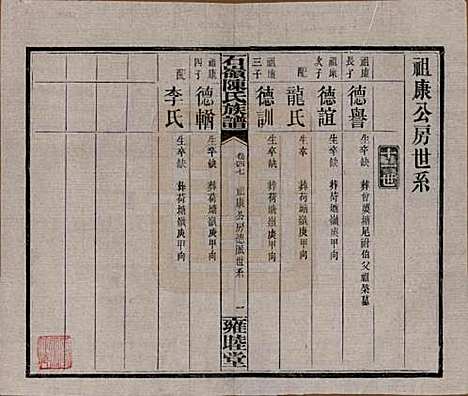 祖康公房世系
十二世
祖康長子 德譽 生卒缺 葬曾家塘尾附伯父祖榮墓
祖康次子 德誼 生卒缺 葬荷塘嶺庚甲向
配 龍氏 生卒缺 葬荷塘嶺庚甲向
祖康三子 德訓 生卒缺 葬荷塘嶺庚甲向
石嶺陳氏族譜 卷四七 祖康公房德派世系 一 雍睦堂
祖康四子 德 生卒缺 葬荷塘嶺庚甲向
配 李氏 生卒缺 葬荷塘嶺庚甲向